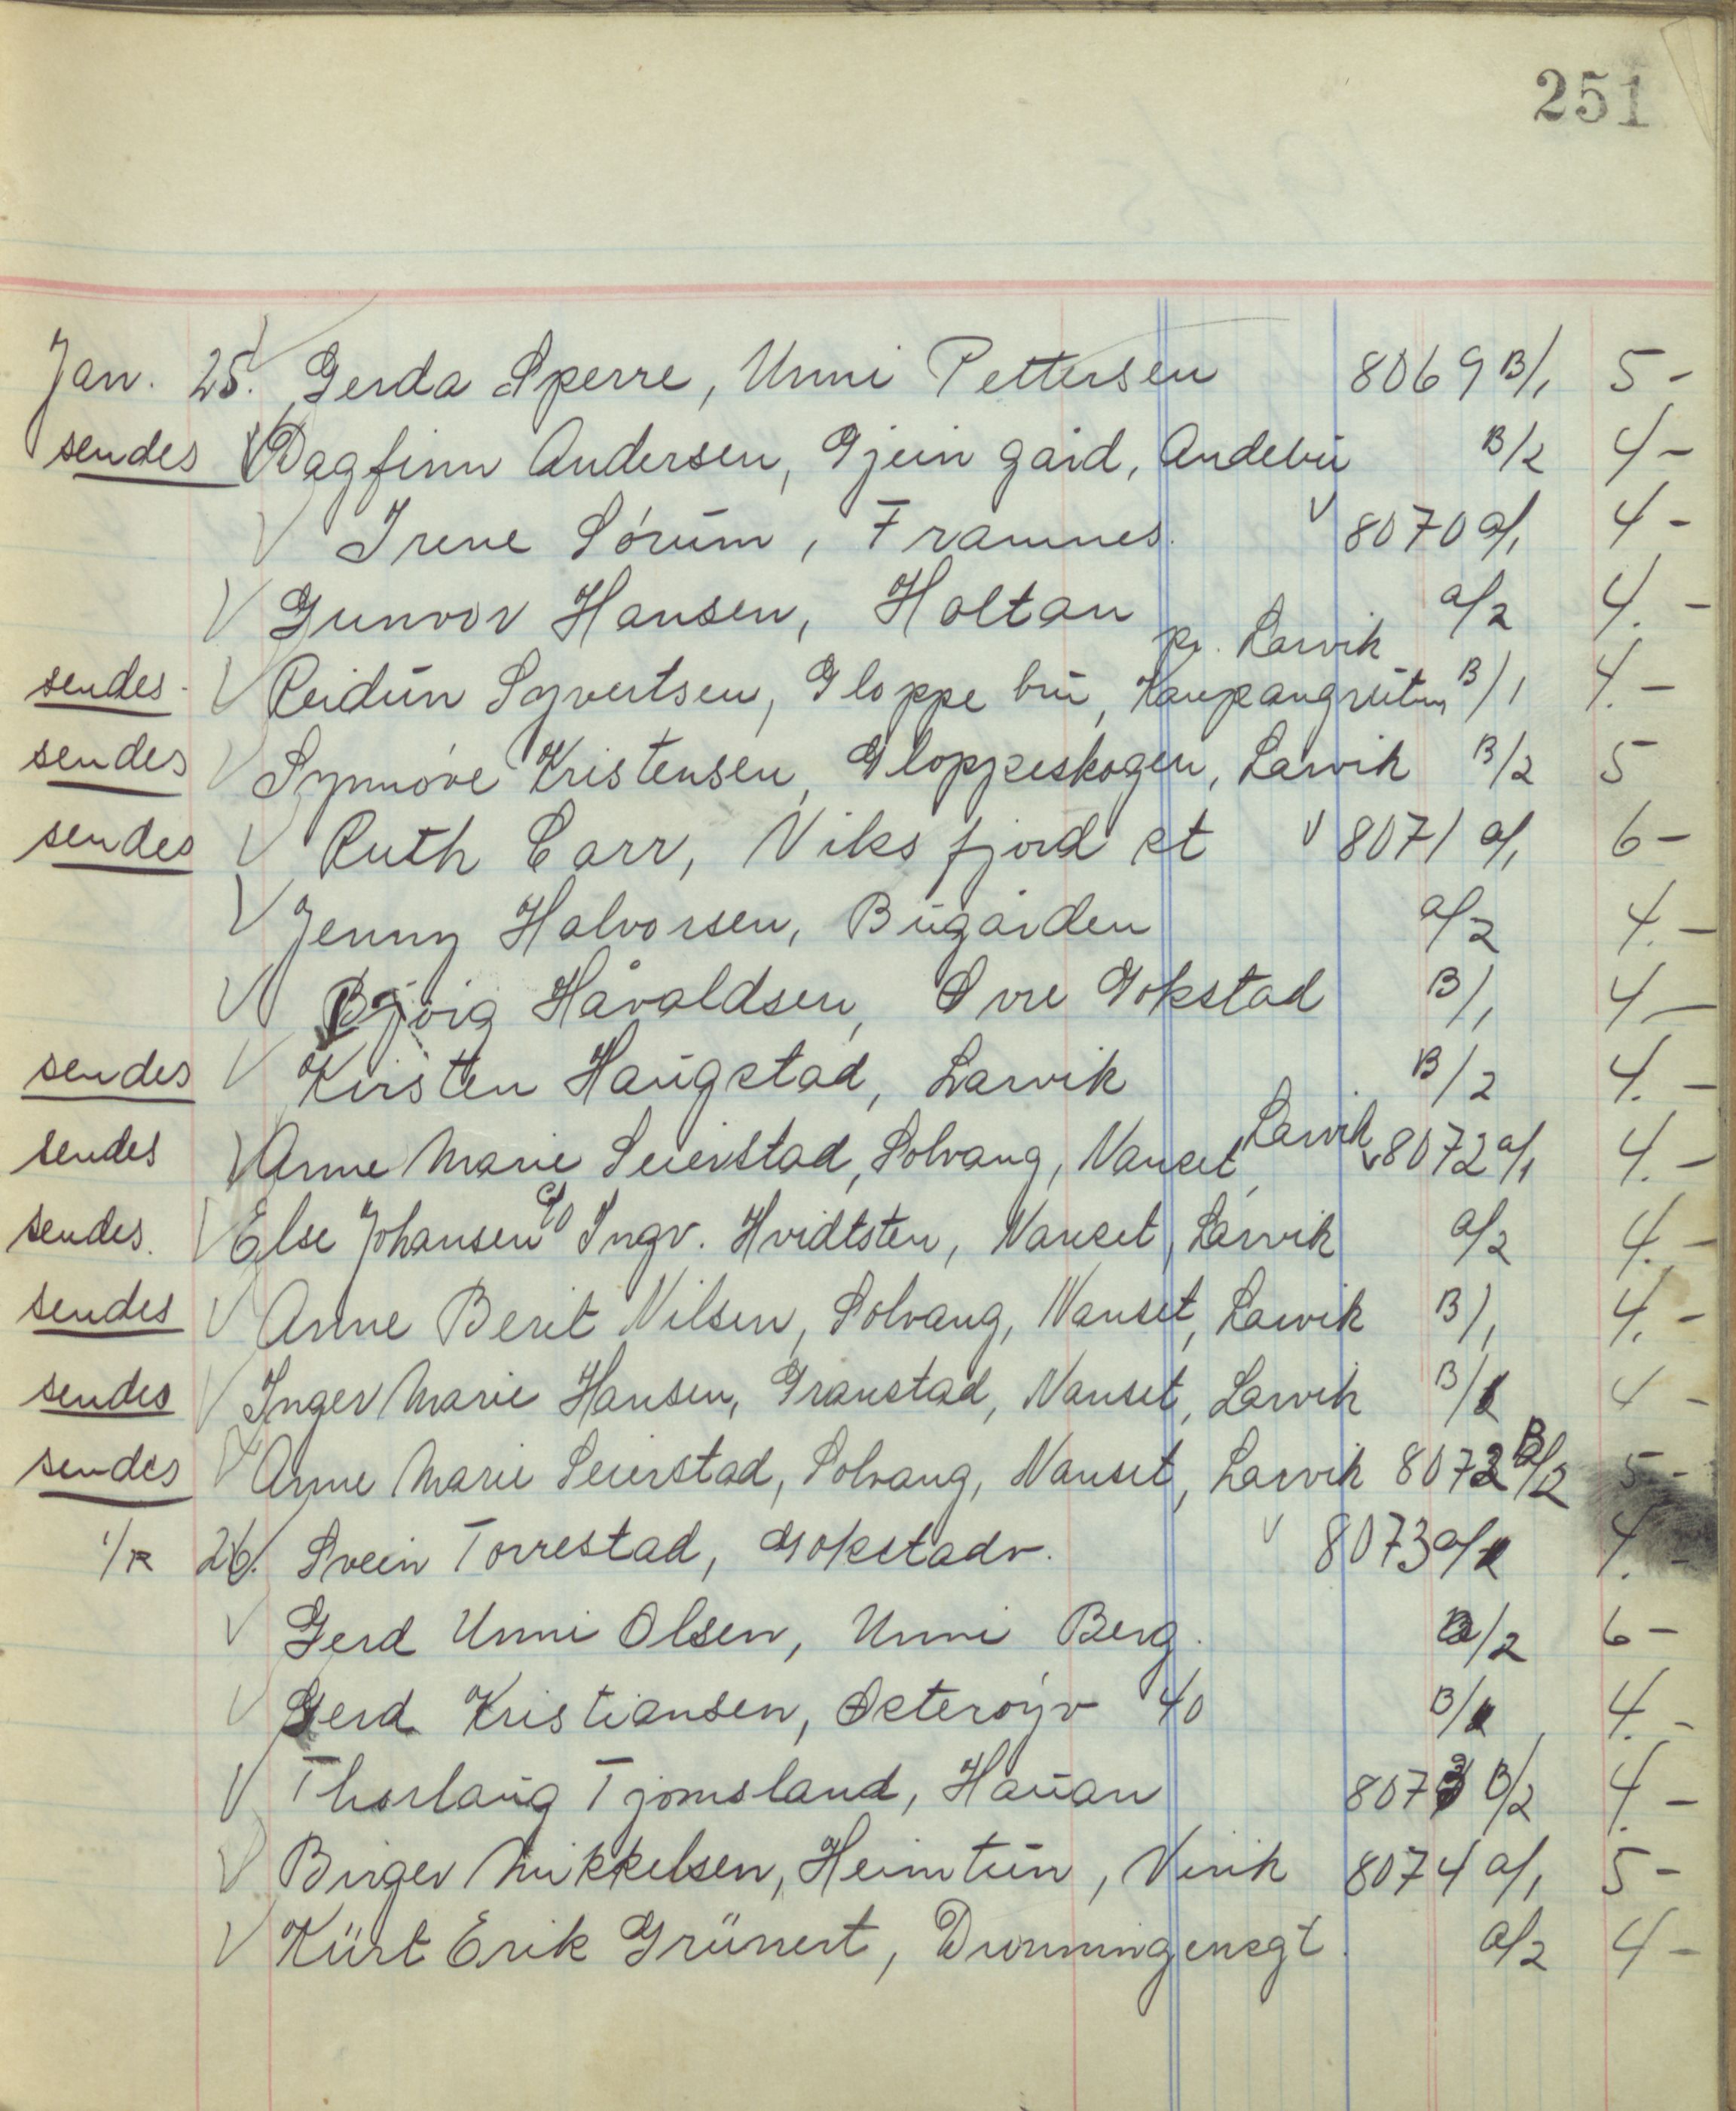 251
Jan. 25. Gerda Sperre, Unni Pettersen 8069 B/1 5 -
sendes Dagfinn Andersen, Gjein gård, Andebu B/2 4 -
Irene Sørum, Framnes. 8070 a/1 4 -
Gunvor Hansen, Holtan a/2 4. -
pr. Larvik
sendes - Reidun Syvertsen, Gloppe bru, Kaupangruten B/1 4. -
sendes Synnøve Kristensen, Gloppeskogen, Larvik B/2 5
sendes Ruth Carr, Viksfjord st 8071 a/1 6 -
Jenny Halvorsen, Bugården a/2 4. -
Bjørg Håvaldsen, Øvre Gokstad B/1 4 -
sendes Kirsten Haugstad, Larvik B/2 4. -
sendes Anne Marie Seierstad, Solvang, Nanset, Larvik 8072 a/1 4. -
sendes. Else Johansen c/o Ingv. Hvidtsten, Nanset, Larvik a/2 4. -
sendes Anne Berit Nilsen, Solvang, Nanset, Larvik B/1 4. -
sendes Inger Marie Hansen, Granstad, Nanset, Larvik B/1 4 -
sendes Anne Marie Seierstad, Solvang, Nanset, Larvik 8072 B/2 5 -
1/R 26. Svein Torrestad, Gokstadv. 8073 a/1 4. -
Gerd Unni Olsen, Unni Berg. a/2 6 -
Gerd Kristiansen, Østerøyv 40 B/1 4. -
Thorlaug Tjomsland, Hauan 8073 B/2 4. -
Birger Mikkelsen, Heimtun, Virik 8074 a/1 5 -
Kurt Erik Grünert, Dronningensgt. a/2 4 -